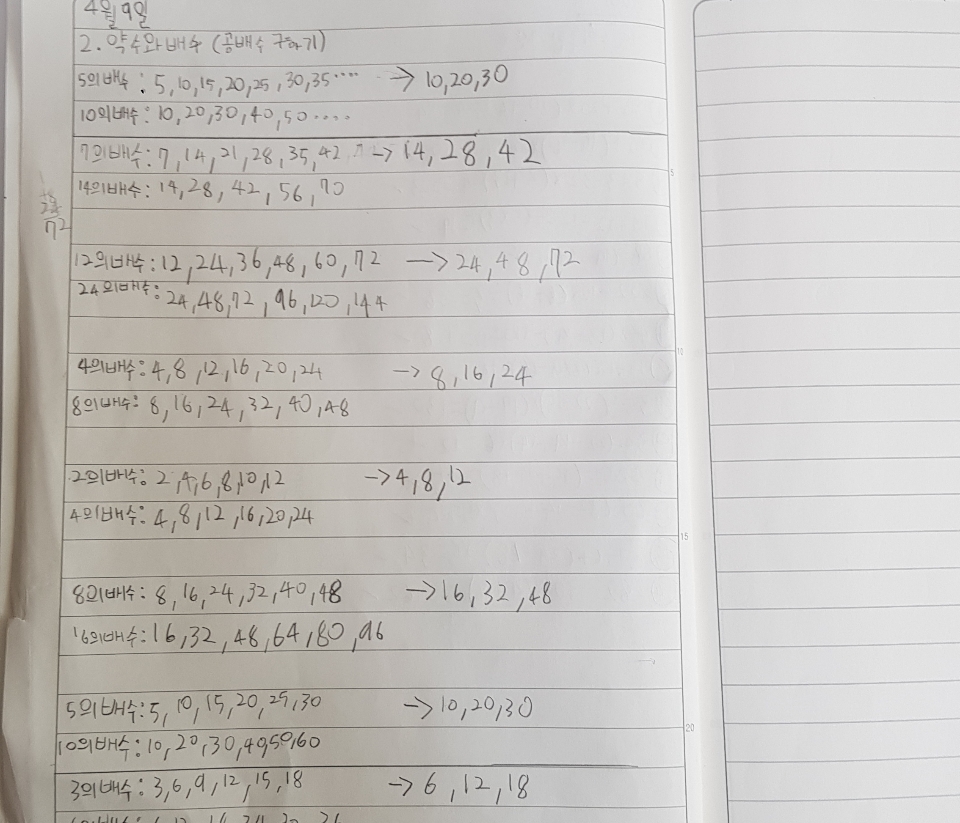 4월 9일
2. 약수와 배수 (공배수 구하기)
5의배수 : 5, 10, 15, 20, 25, 30, 35 ···· → 10, 20, 30
10의배수 : 10, 20, 30, 40, 50 ····
7의배수 : 7, 14, 21, 28, 35, 42 → 14, 28, 42
14의배수 : 14, 28, 42, 56, 70
72
12의배수 : 12, 24, 36, 48, 60, 72 → 24, 48, 72
24의배수 : 24, 48, 72, 96, 120, 144
4의배수 : 4, 8, 12, 16, 20, 24 → 8, 16, 24
8의배수 : 8, 16, 24, 32, 40, 48
2의배수 : 2, 4, 6, 8, 10, 12 → 4, 8, 12
4의배수 : 4, 8, 12, 16, 20, 24
8의배수 : 8, 16, 24, 32, 40, 48 → 16, 32, 48
16의배수 : 16, 32, 48, 64, 80, 96
5의배수 : 5, 10, 15, 20, 25, 30 → 10, 20, 30
10의배수 : 10, 20, 30, 40, 50, 60
3의배수 : 3, 6, 9, 12, 15, 18 → 6, 12, 18
5
10
15
20